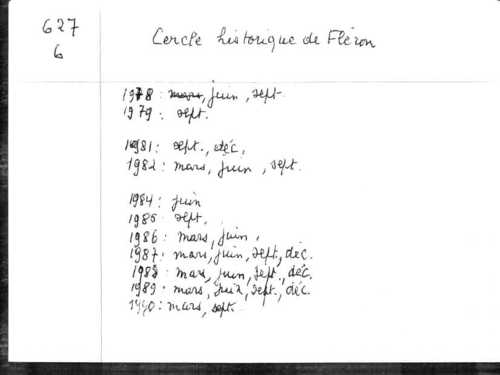 627
6
Cercle historique de Fléron
1978 : mars, juin, sept
1979 : sept.
1981 : sept., déc,
1982 : mars, juin, sept.
1984 : juin
1985 : sept.
1986 : mars, juin,
1987 : mars, juin, sept., déc.
1988 : mars, juin, sept., déc.
1989 : mars, juin, sept., déc.
1990 : mars, sept.